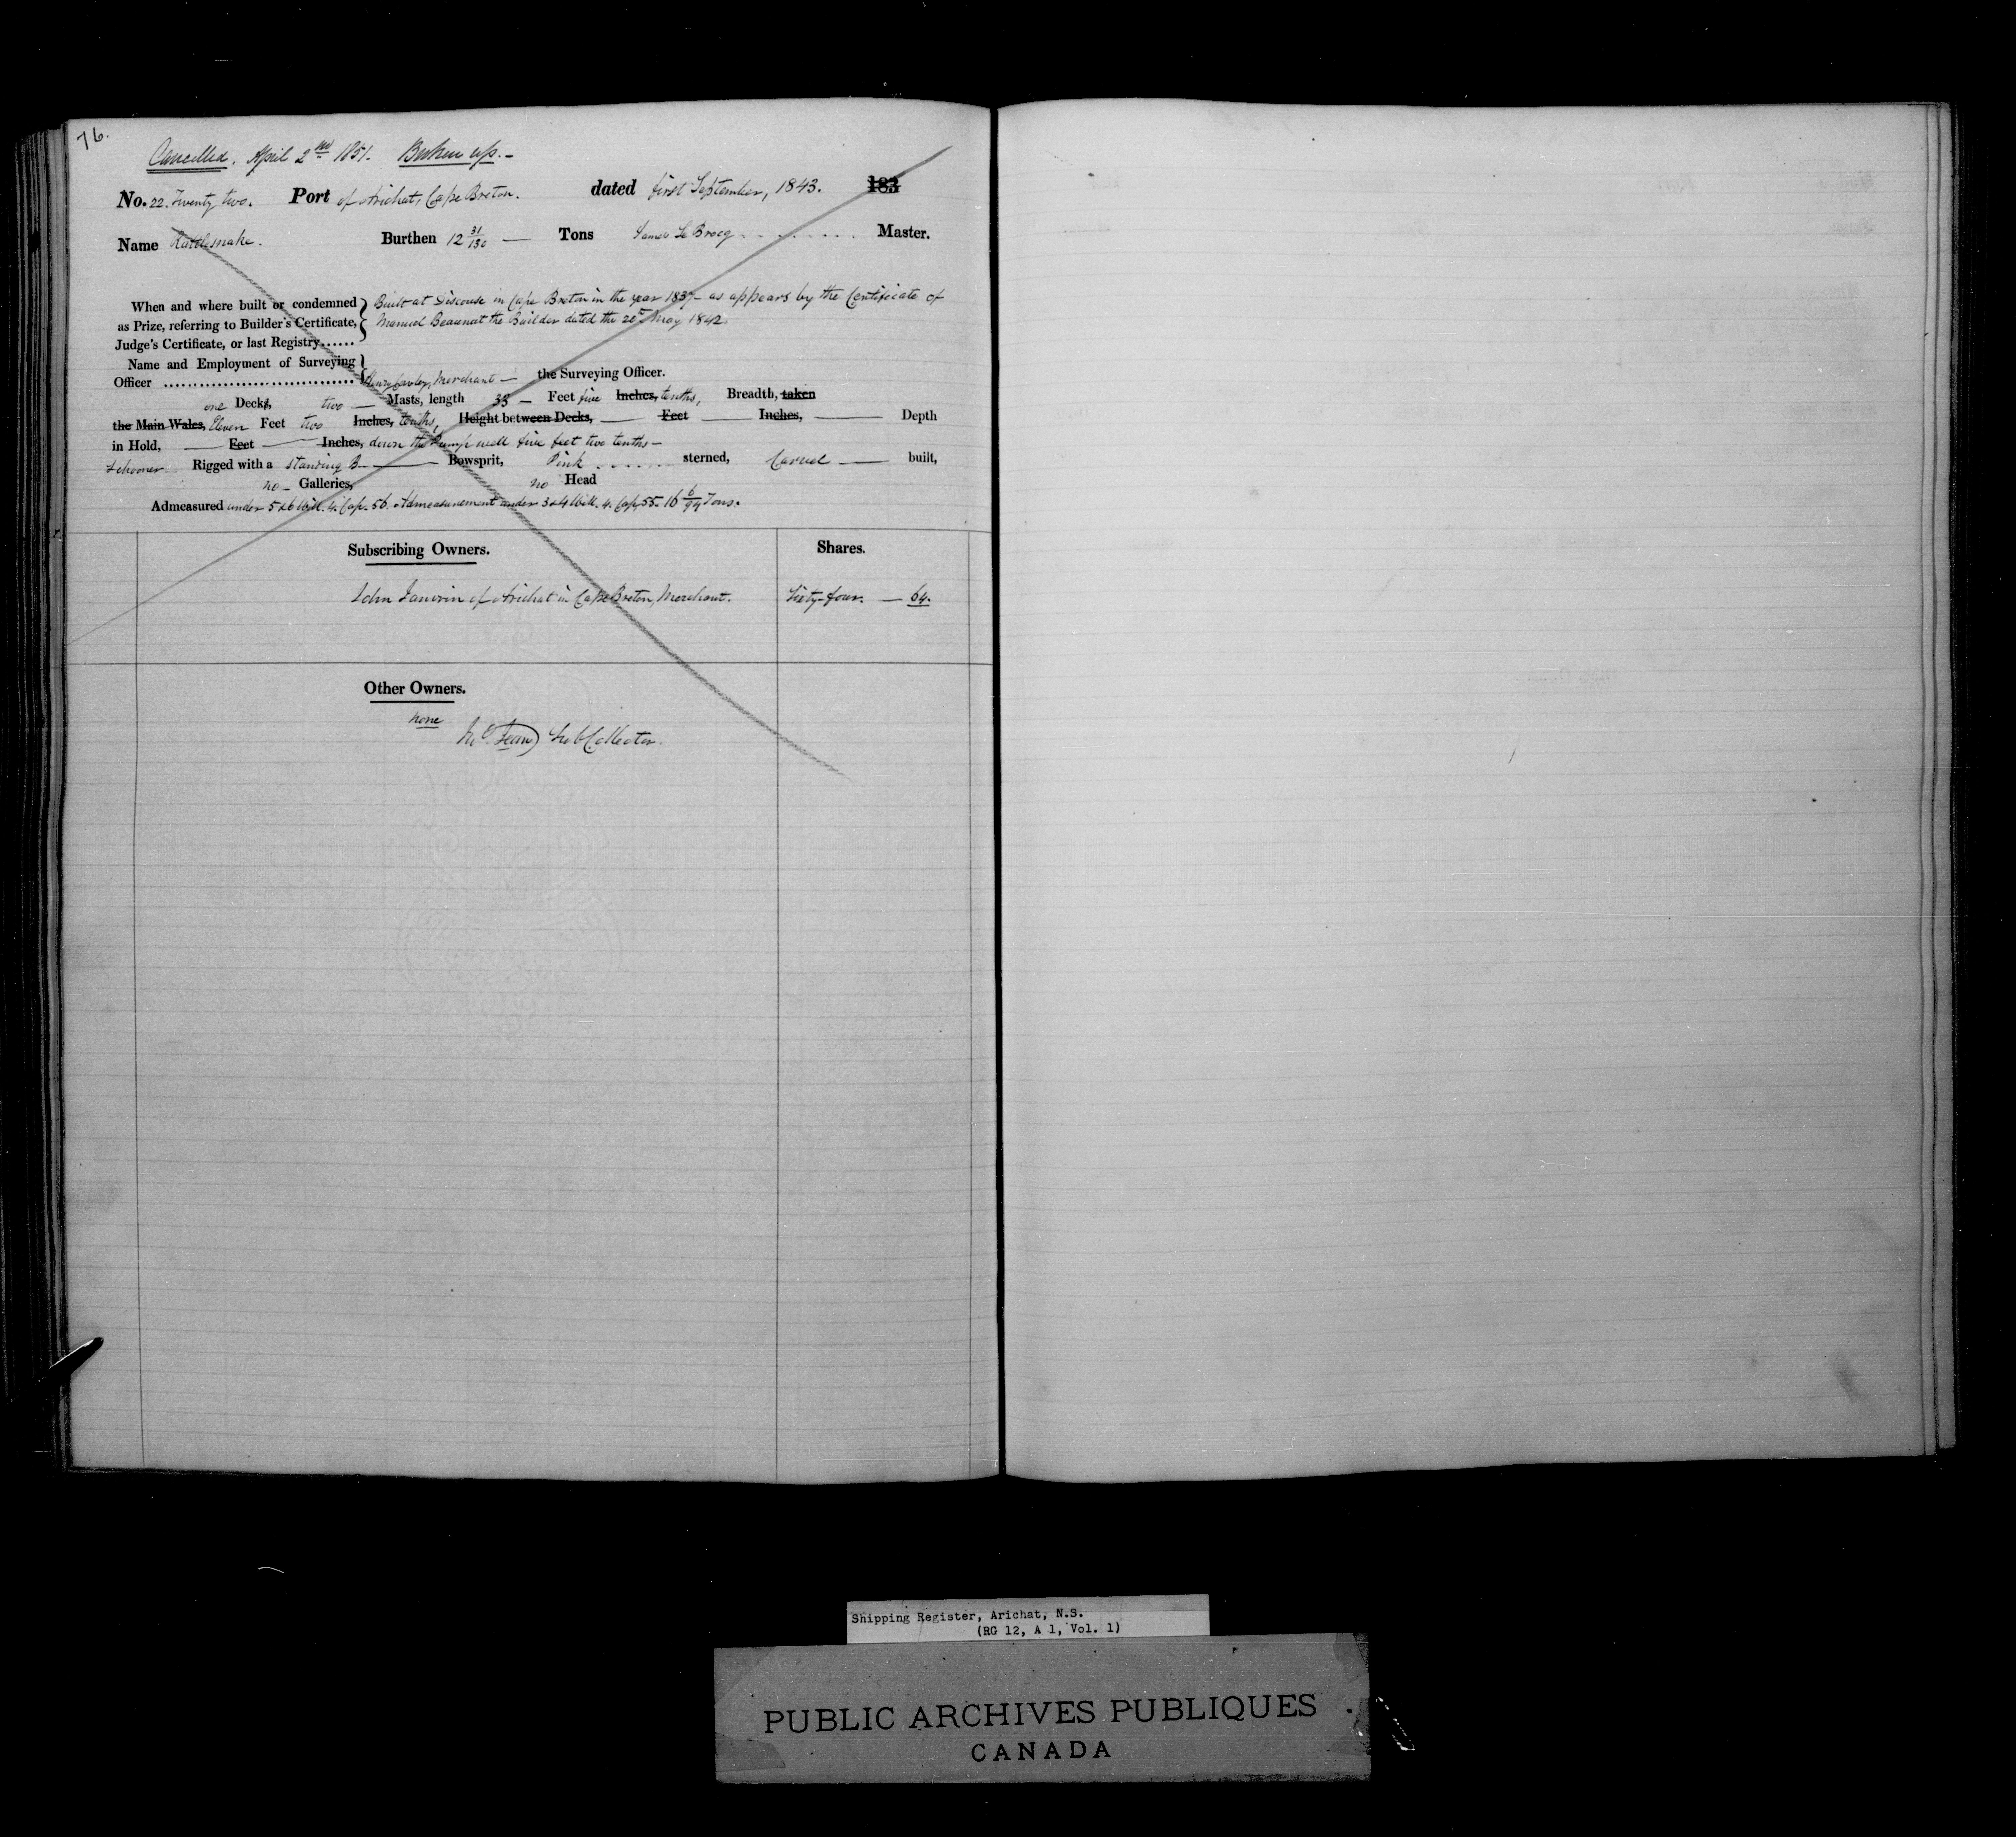 76.
Cancelled. April 2nd 1851. Broken up. –
No. 22. Twenty two. Port of Arichat, Cape Breton. dated first September, 1843. 183
Name Rattlesnake. Burthen 12 31/130 — Tons James Le Brocq Master.
When and where built or condemned
as Prize, referring to Builder's Certificate,
Judge's Certificate, or last Registry......
Built at Discouse in Cape Breton in the year 1837 – as appears by the Certificate of
Manuel the Builder dated the May 1842.
Name and Employment of Surveying
Officer ................................ Henry Merchant — the Surveying Officer.
one Decks, two — Masts, length 33 — Feet five Inches, tenths, Breadth, taken
the Main Wales, Eleven Feet two Inches, tenths, Height between Decks, — Feet — Inches, — Depth
in Hold, — Feet — Inches, down the Pump well five feet two tenths –
Schooner Rigged with a Standing B — Bowsprit, Pink ....... sterned, Carvel — built,
no – Galleries, no Head
Admeasured under 5 & 6 Will. 4. Cap. 56. Admeasurement under 3 & 4 Will. 4. Cap. 55. 16 6/94 Tons.
Subscribing Owners. Shares.
John Janvrin of Arichat in Cape Breton, Merchant. Sixty-four. — 64.
Other Owners.
none
Sub Collector.
Shipping Register, Arichat, N.S.
(RG 12, A 1, Vol. 1)
PUBLIC ARCHIVES PUBLIQUES
CANADA